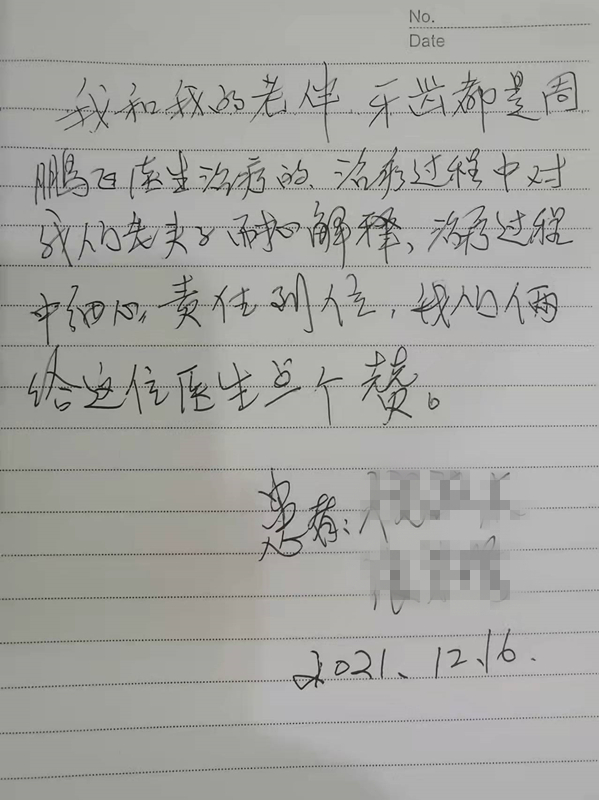 No.
Date
我和我的老伴、牙齿都是周
鹏飞医生治疗的、治疗过程中对
我们老夫子耐心解释、治疗过程
中细心,责任到位,我们俩
给这位医生点个赞。
患者:
2021、12.16.